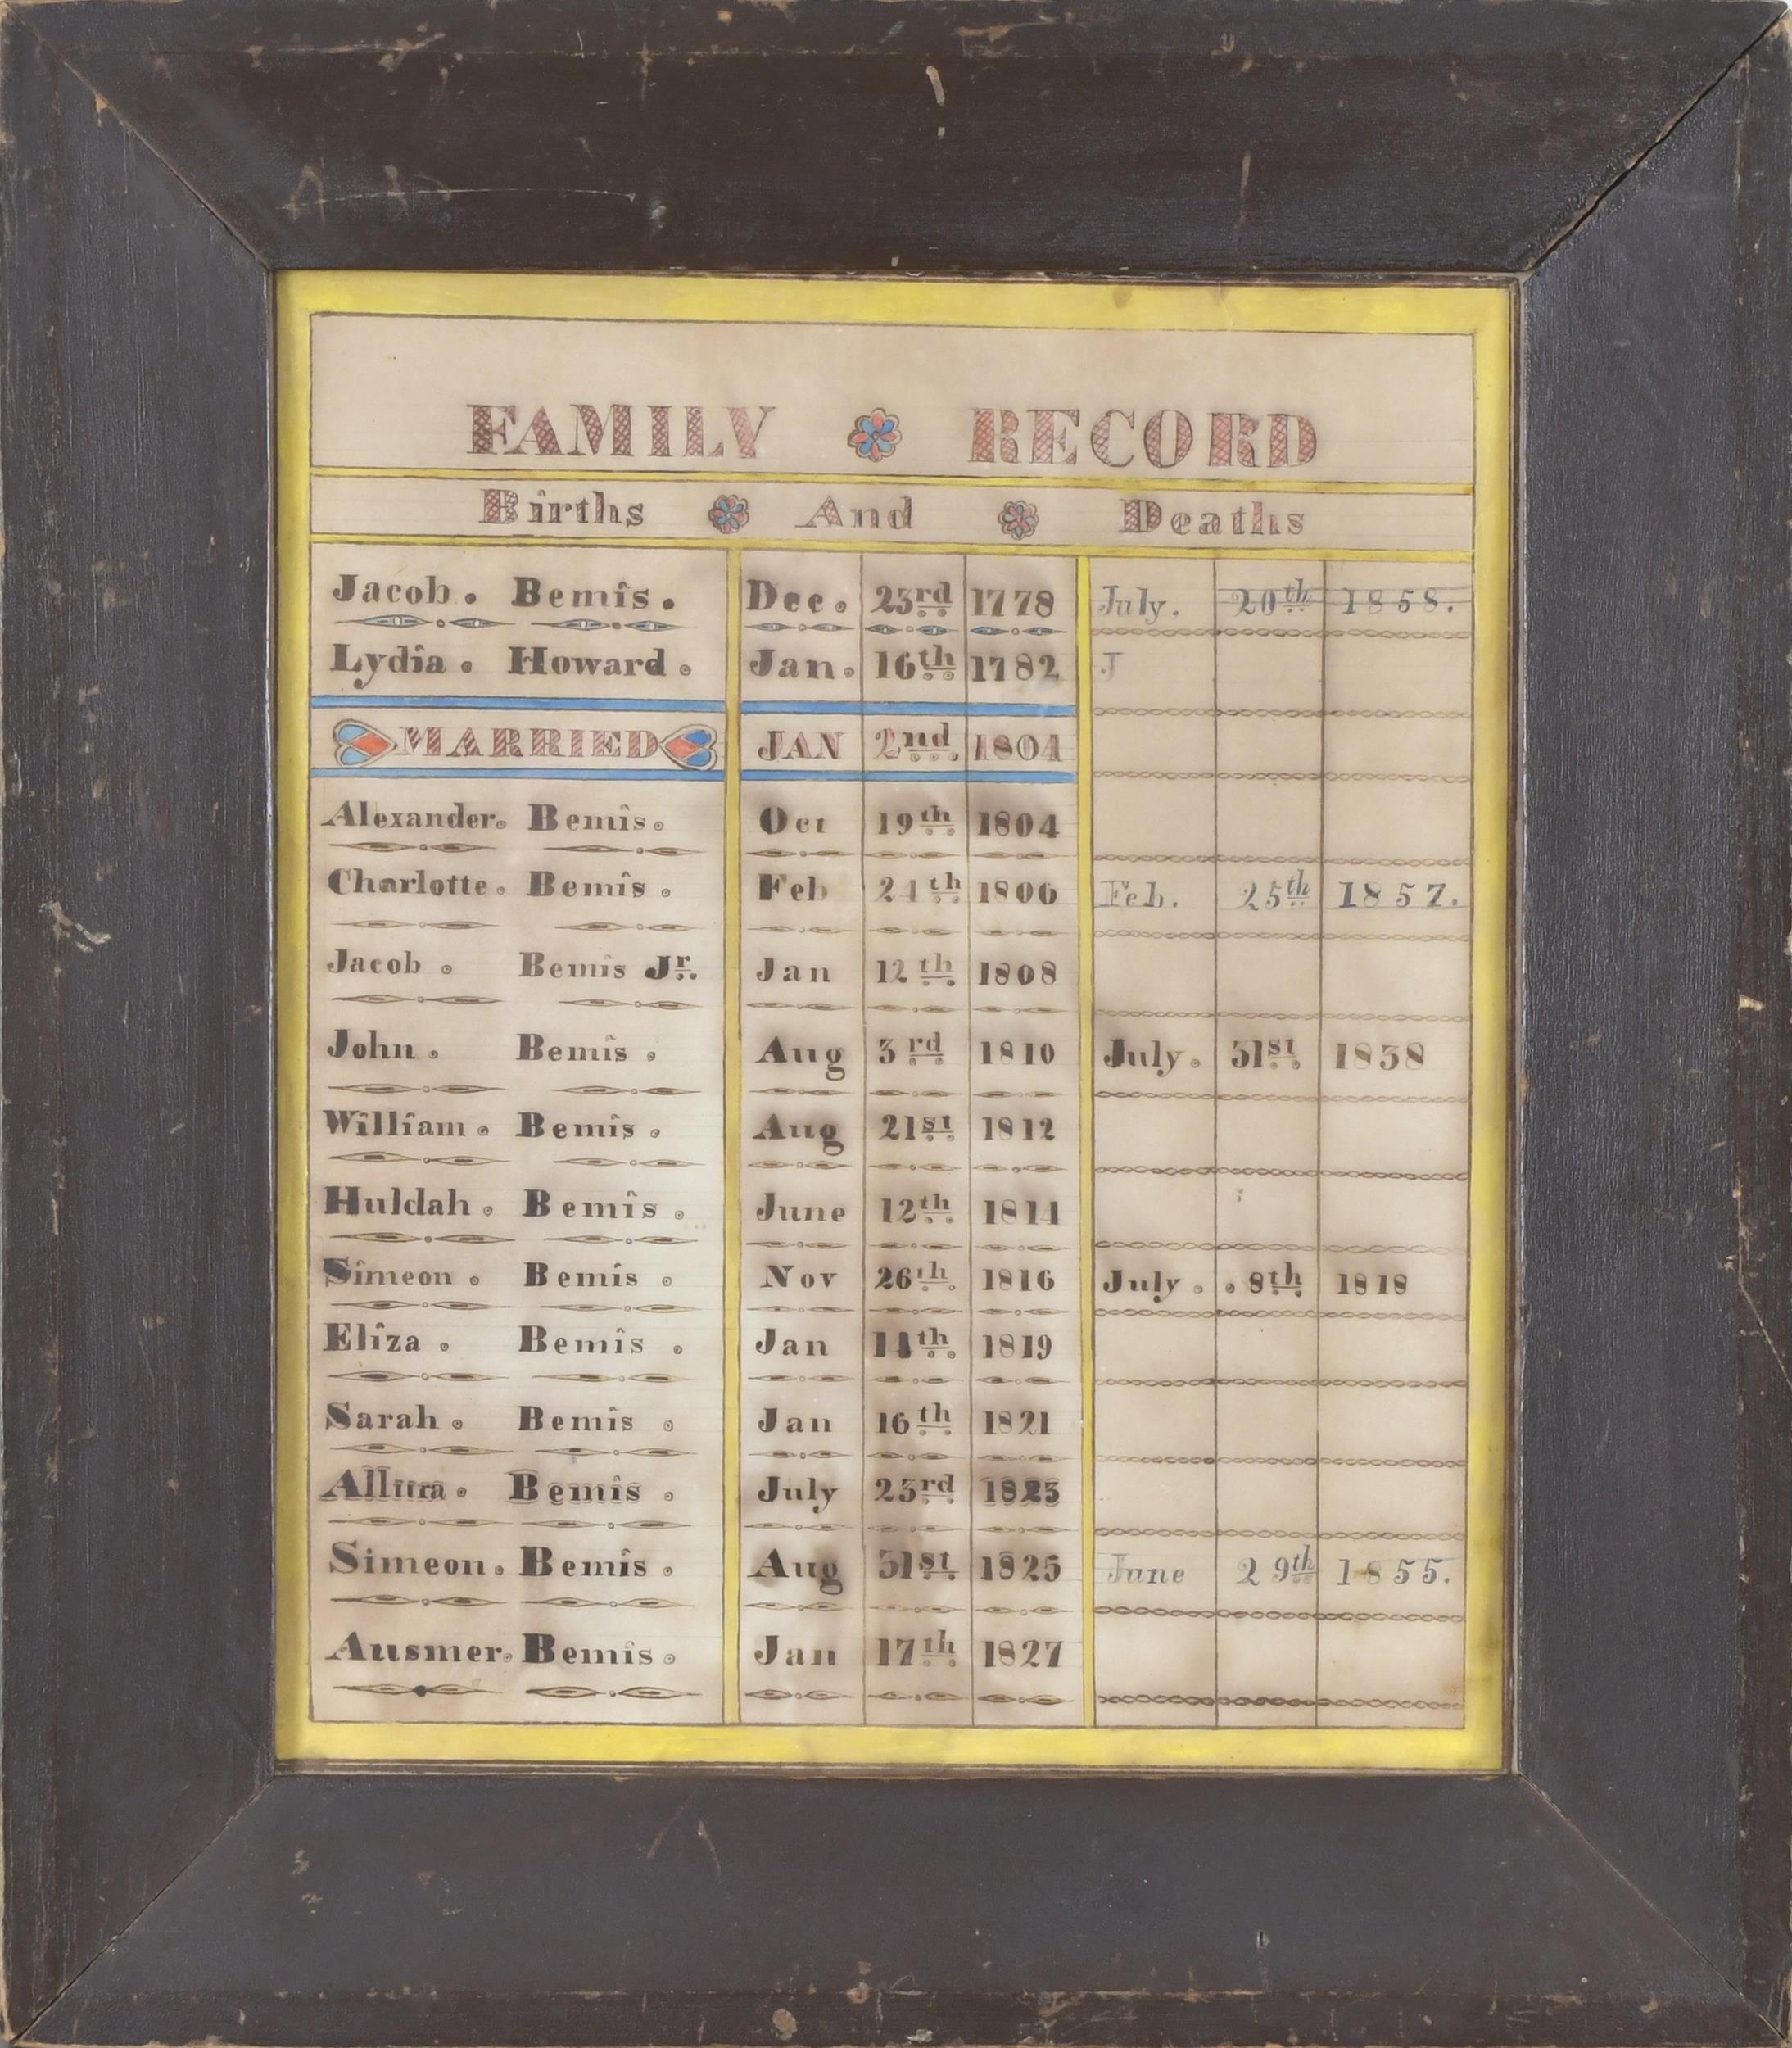 FAMILY RECORD
Births And Deaths
Jacob. Bemis. Dec. 23rd 1778 July. 20th 1858.
Lydia. Howard. Jan. 16th 1782 J
MARRIED JAN 2nd. 1804
Alexander. Bemis. Oct 19th 1804
Charlotte. Bemis. Feb 24th 1806 Feb. 25th 1857.
Jacob. Bemis Jr. Jan 12th 1808
John. Bemis. Aug 3rd 1810 July. 31st. 1838
William. Bemis. Aug 21st 1812
Huldah. Bemis. June 12th 1814
Simeon. Bemis. Nov 26th. 1816 July. .8th. 1818
Eliza. Bemis. Jan 14th. 1819
Sarah. Bemis. Jan 16th 1821
Bemis. July 23rd 1823
Simeon. Bemis. Aug 31st. 1825 June 29th 1855.
Ausmer. Bemis. Jan 17th 1827